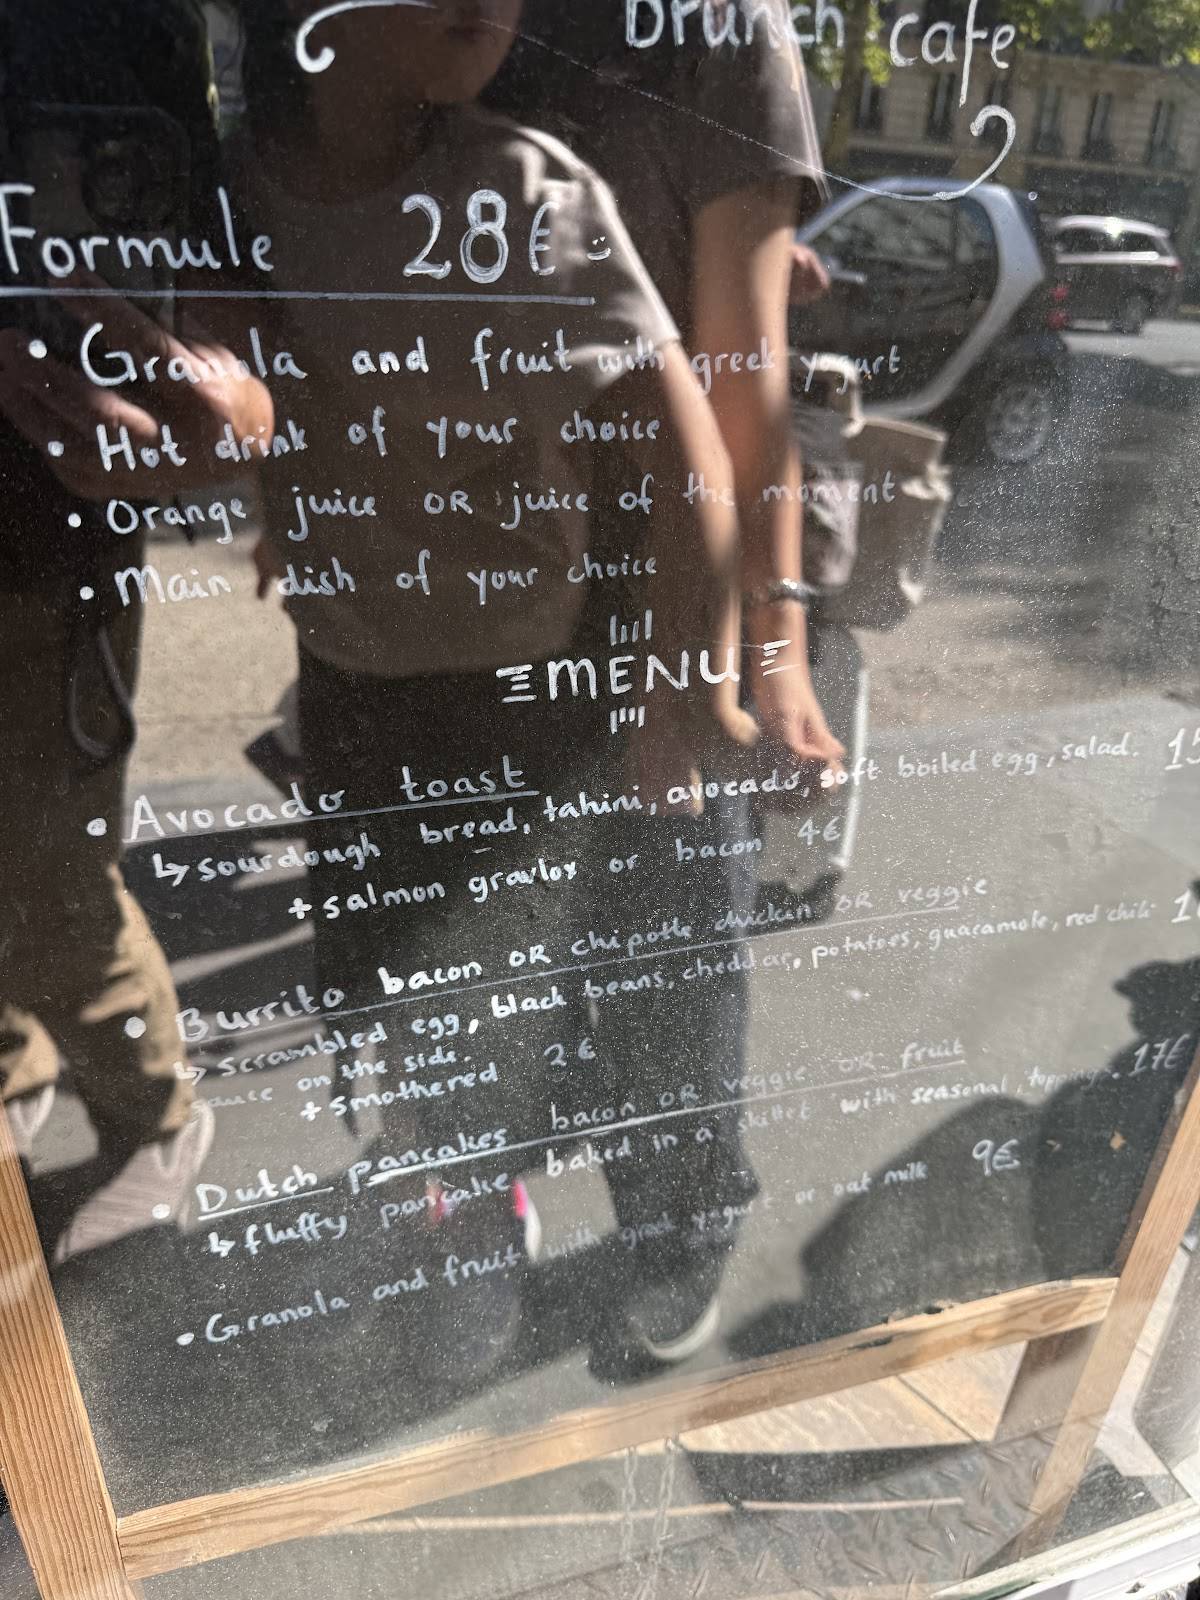 Brunch cafe
Formule 28€
• Granola and fruit with greek yogurt
• Hot drink of your choice
• Orange juice OR juice of the moment
• Main dish of your choice
MENU
• Avocado toast
↳ sourdough bread, tahini, avocado, soft boiled egg, salad. 15
+ salmon gravlox or bacon 4€
• Burrito bacon OR chipotle chicken OR veggie
↳ scrambled egg, black beans, cheddar, potatoes, guacamole, red chili 1
sauce on the side.
+ smothered 2€
• Dutch pancakes bacon OR veggie OR fruit
↳ fluffy pancake baked in a skillet with seasonal, toppings. 17€
• Granola and fruit with greek yogurt or oat milk 9€